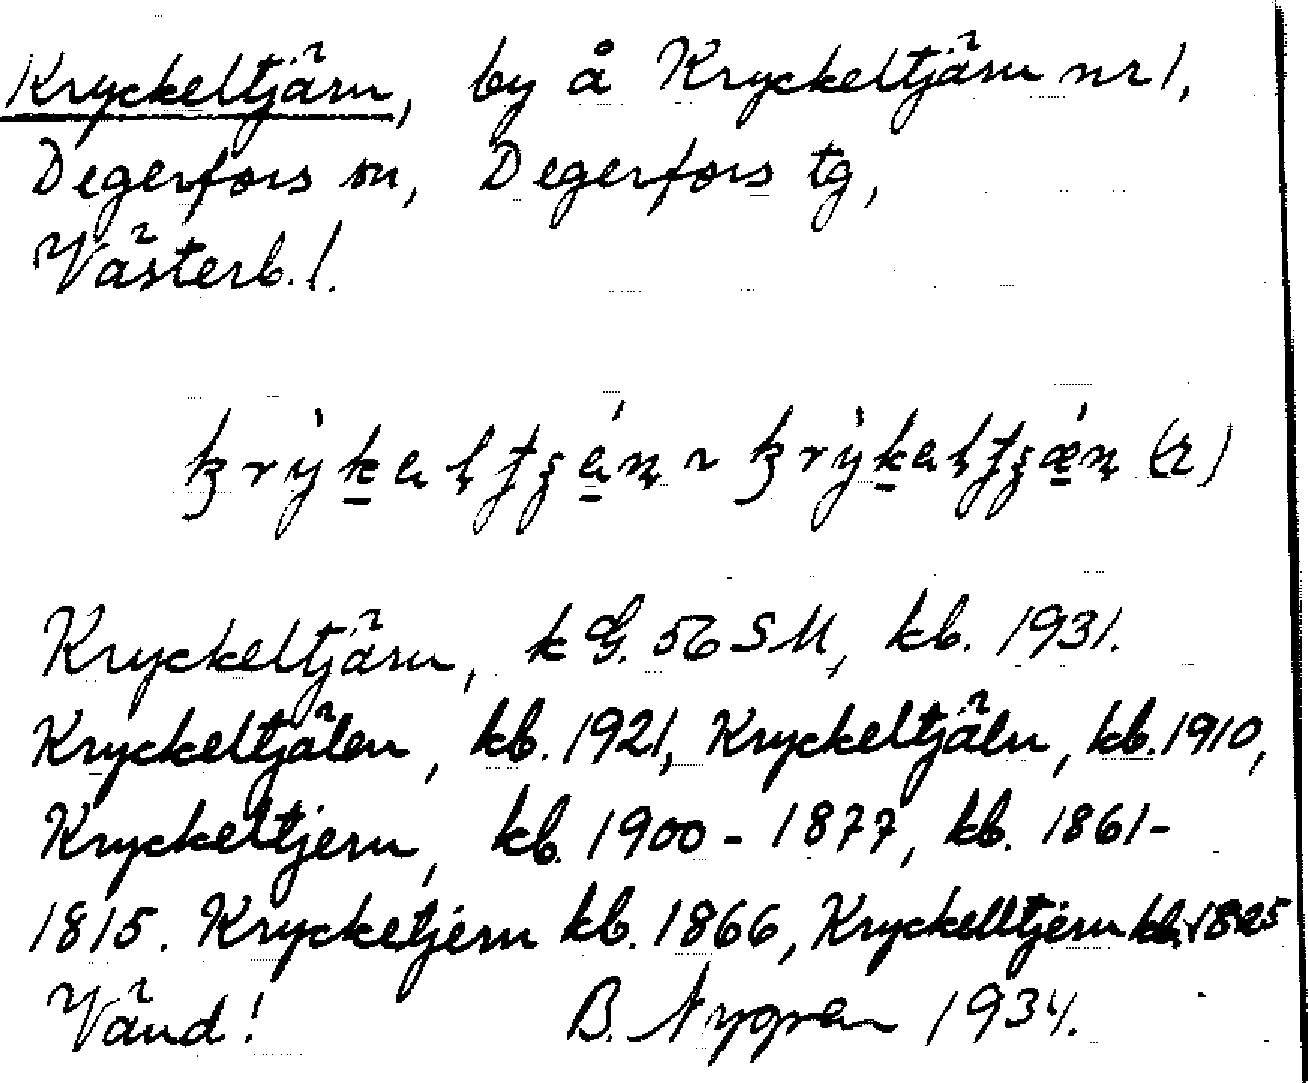 Kryckeltjärn, by å Kryckeltjärn nr 1,
Degerfors sn, Degerfors tg,
Västerb. l.
Kryckeltjärn, k G. 56 SM, kb. 1931.
Kryckeltjälen, kb. 1921, Kryckeltjäln, kb. 1910,
Kryckeltjern, kb. 1900 - 1877, kb. 1861-
1815. Krycketjern kb. 1866, Kryckelltjern kb. 1825
Vänd! B. Nygren 1934.